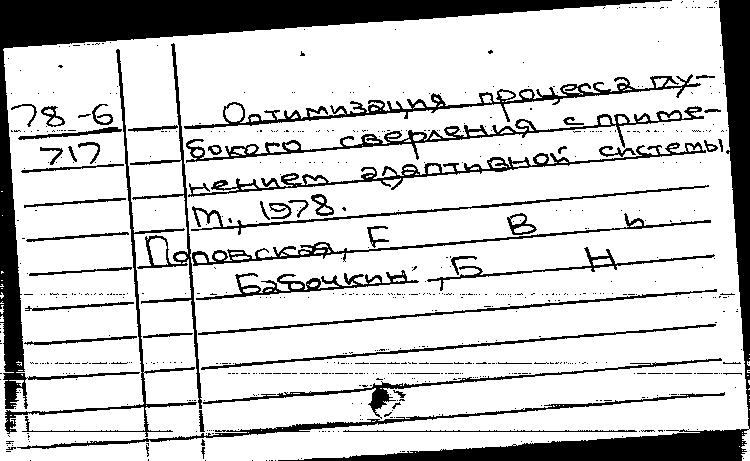 78-6
717
Оптимизация процесса глу-
бокого сверления с приме-
нением адаптивной системы.
М., 1978.
Поповская, Е В
Бабочкин, Б Н